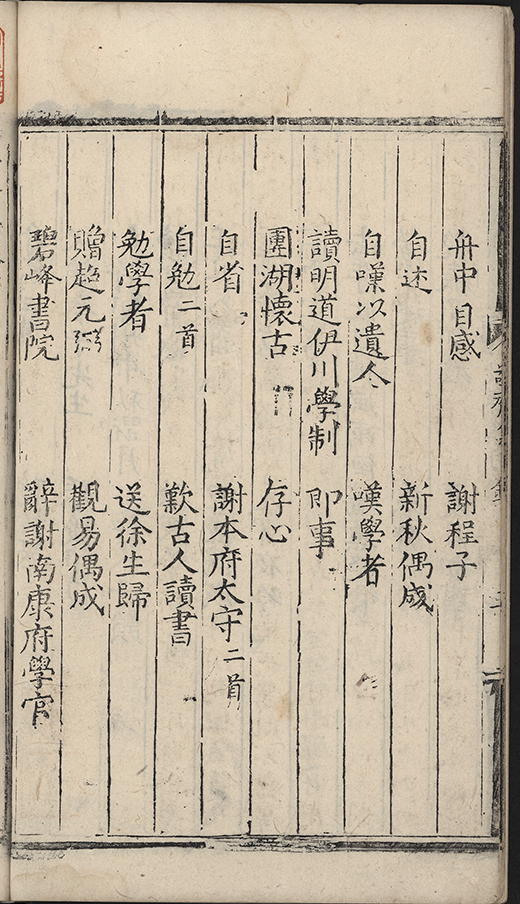 舟中自感 謝程子
自述 新秋偶感
自嘆以遺令 嘆學者
讀明道伊川學制 即事
團湖懷古 存心
自省 謝本府太守二首
自勉二首 歎古人讀書
勉學者 送徐生歸
贈趙元弼 觀易偶成
碧峰書院 辭謝南康府學官